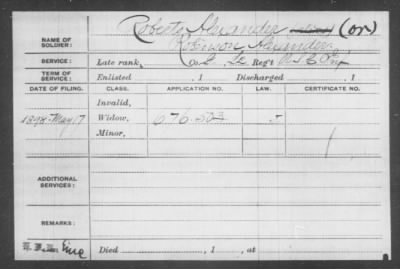 Roberts, Alexander (or)
NAME OF SOLDIER: Robinson Alexander
SERVICE: Late rank, Co. Regt U.S.C. Inf
TERM OF SERVICE: Enlisted , 1 Discharged , 1
DATE OF FILING. CLASS. APPLICATION NO. LAW. CERTIFICATE NO.
Invalid,
1898-May 17 Widow, 676.503
Minor,
ADDITIONAL SERVICES:
REMARKS:
Died , 1 , at